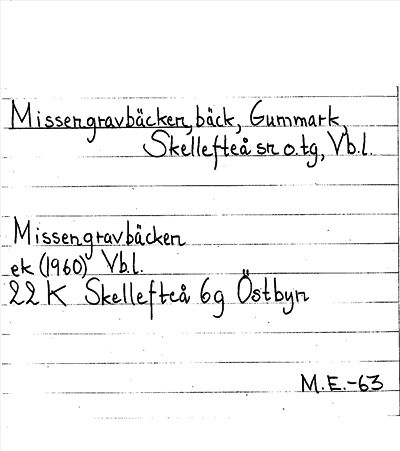 Missengravbäcken, bäck, Gummark,
Skellefteå sn o. tg, Vb.l.
Missengravbäcken
ek (1960) Vb.l.
22 K Skellefteå 6g Östbyn
M.E.-63